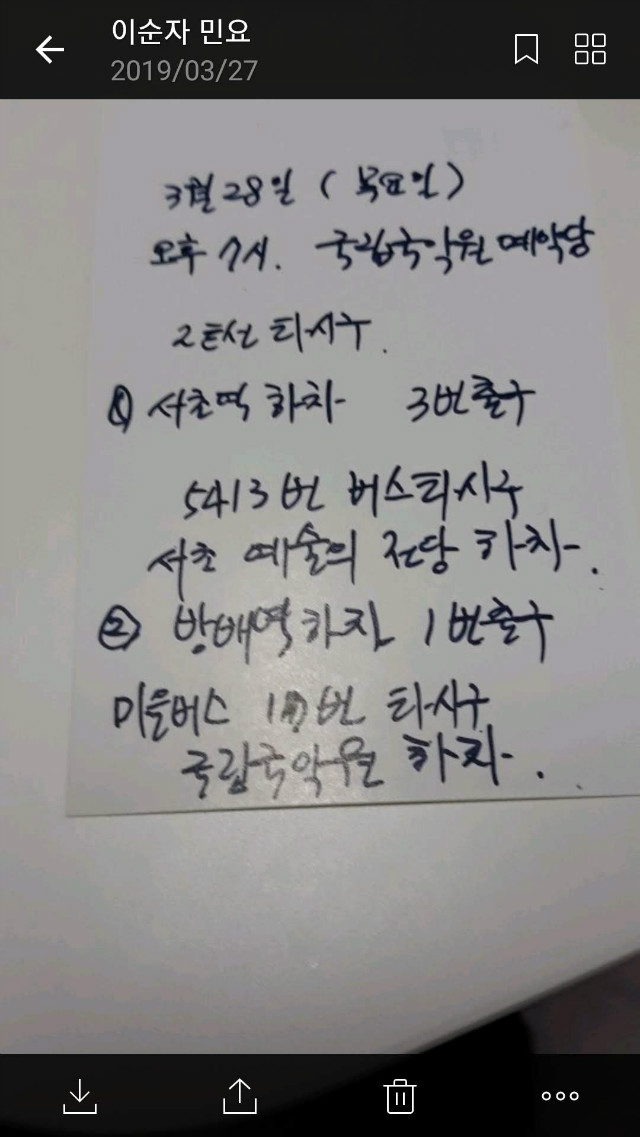 이순자 민요
2019/03/27
3월 28일 ( 목요일 )
오후 7시. 국립국악원 예악당
2호선 타시구.
① 서초역 하차- 3번출구
5413번 버스타시구
서초 예술의 전당 하차-.
② 방배역하차 1번출구
마을버스 번 타시구
국립국악원 하차-.